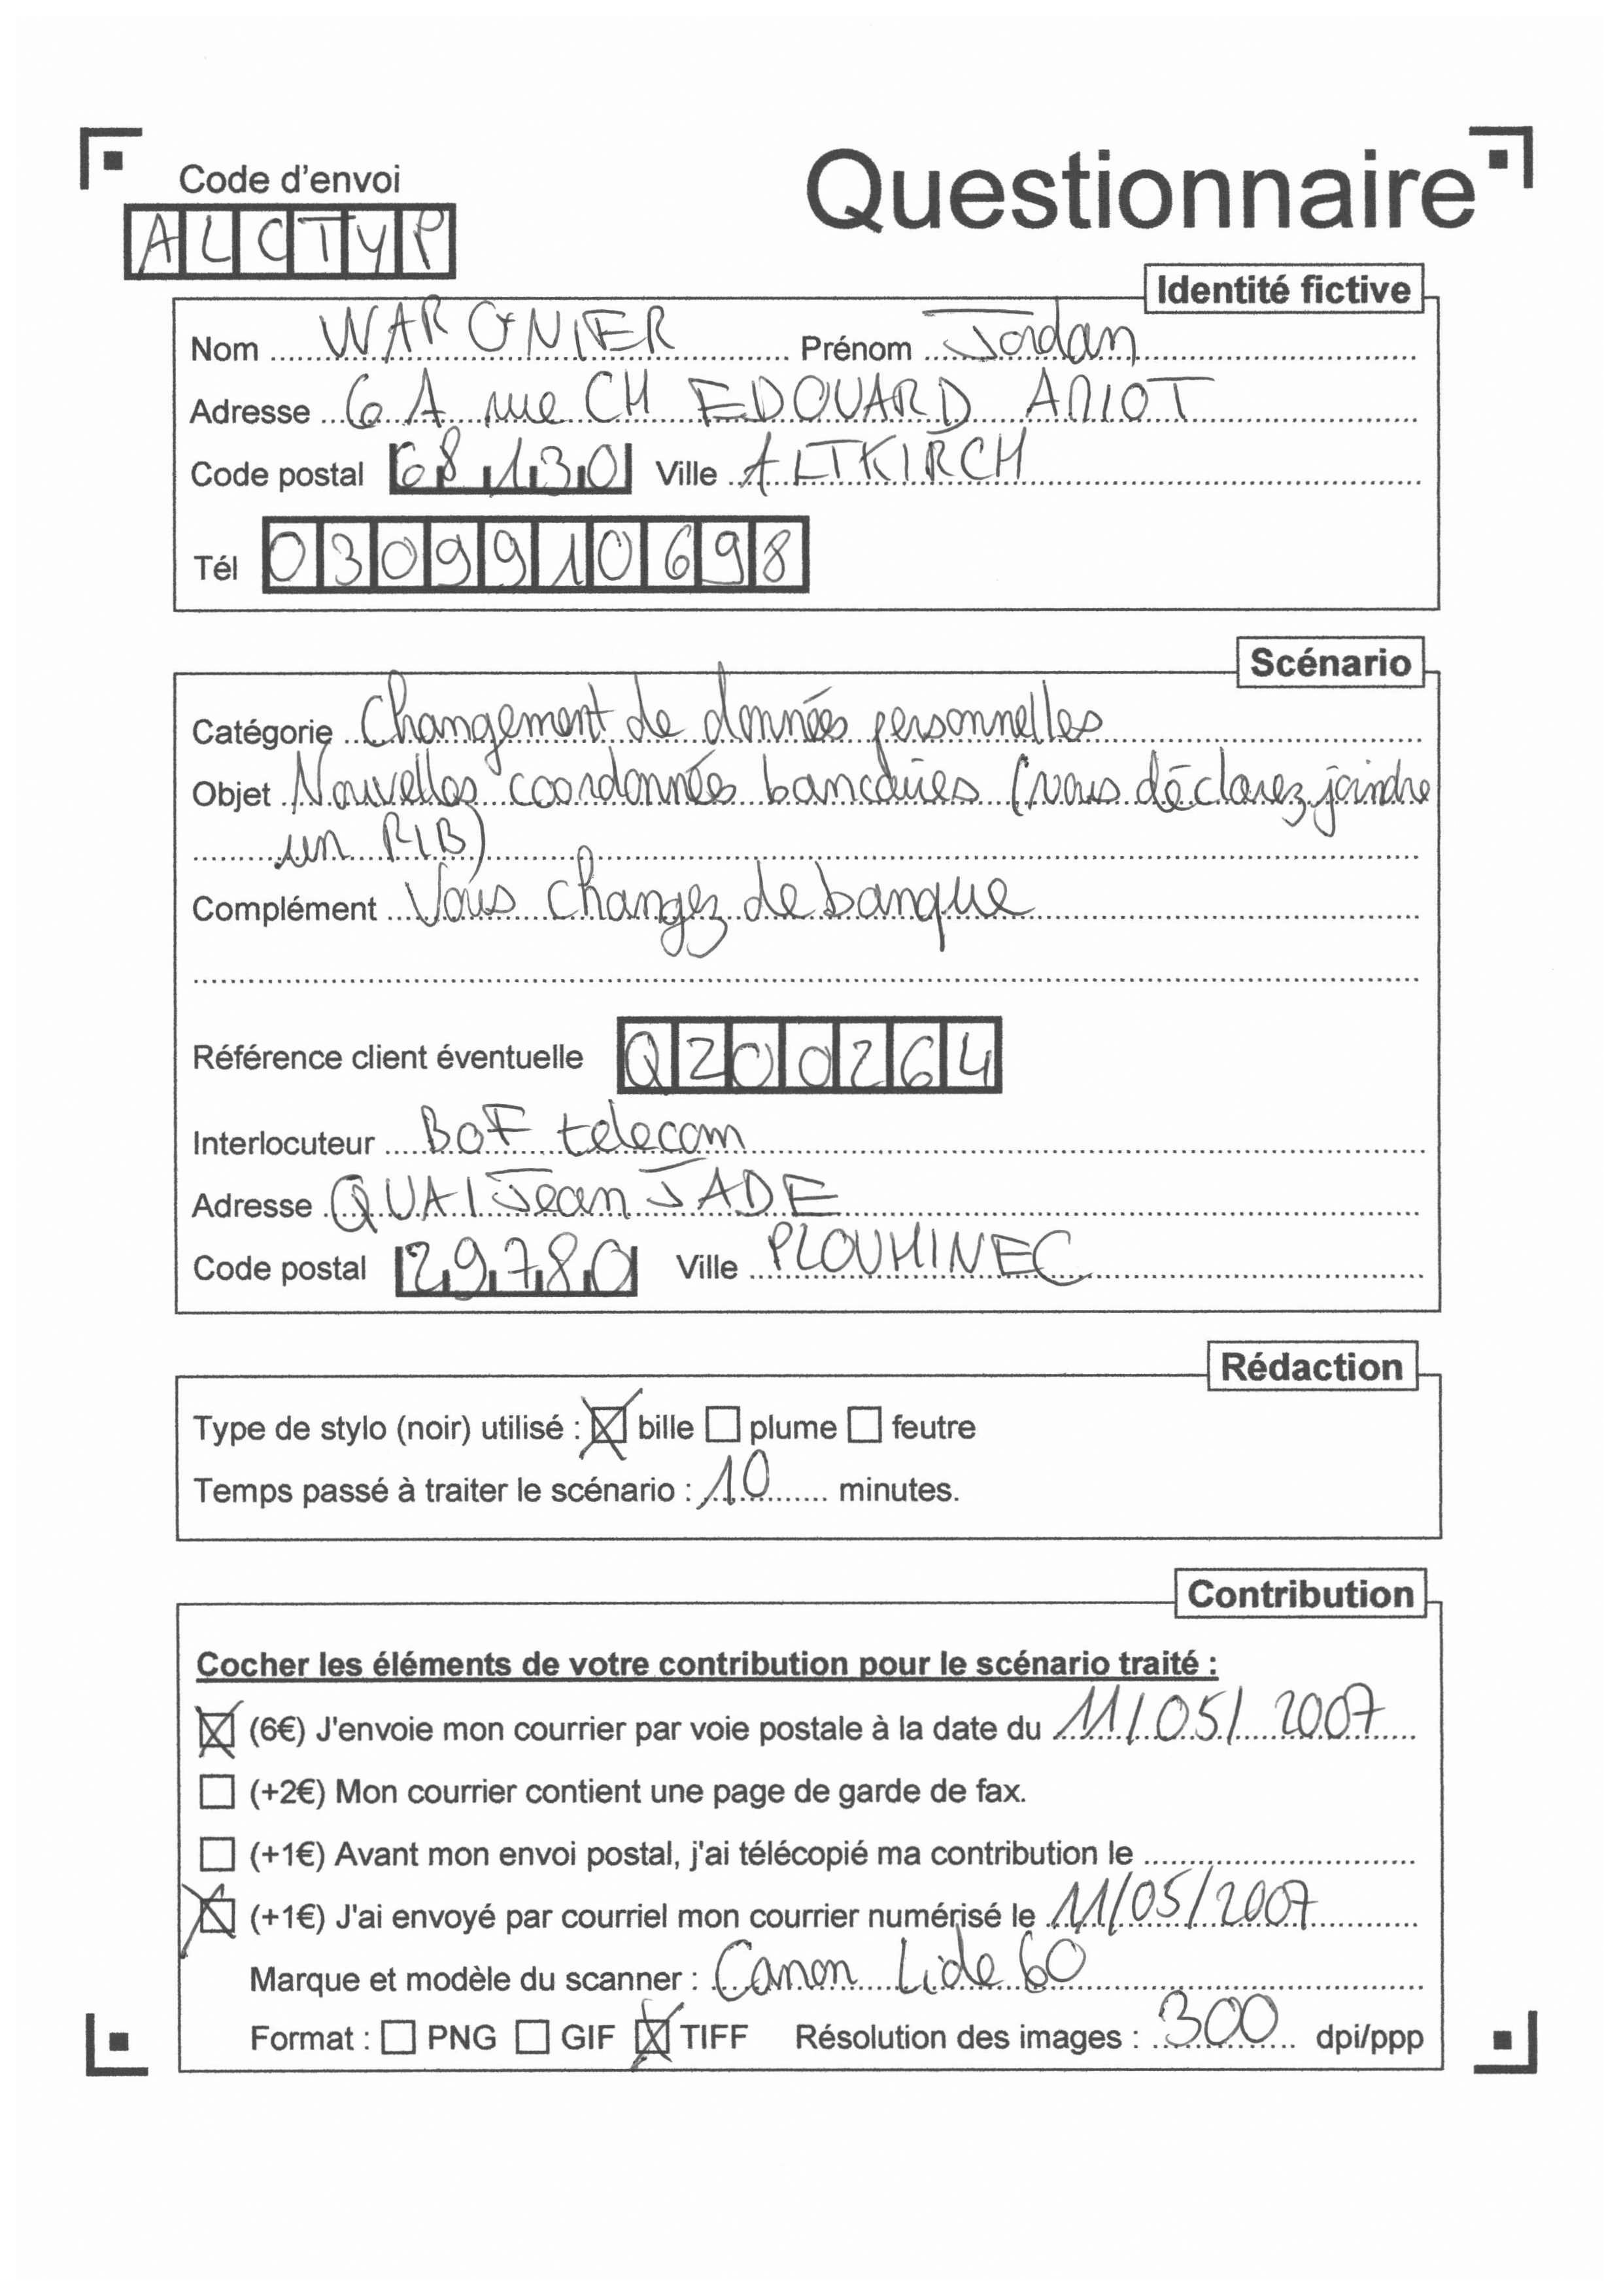 Code d'envoi
Questionnaire
ALCTYP
Identité fictive
Nom WARGNIER Prénom Jordan
Adresse 6 A rue CH EDOUARD AMIOT
Code postal 68130 Ville ALTKIRCH
Tél 0309910698
Scénario
Catégorie Changement de données personnelles
Objet Nouvelles coordonnées bancaires (vous déclarez joindre
un RIB)
Complément Vous changez de banque
Référence client éventuelle Q200264
Interlocuteur BoF telecom
Adresse QUAI Jean JADE
Code postal 29780 Ville PLOUHINEC
Rédaction
Type de stylo (noir) utilisé : ☒ bille ☐ plume ☐ feutre
Temps passé à traiter le scénario : 10 minutes.
Contribution
Cocher les éléments de votre contribution pour le scénario traité :
☒ (6€) J'envoie mon courrier par voie postale à la date du 11/05/2007
☐ (+2€) Mon courrier contient une page de garde de fax.
☐ (+1€) Avant mon envoi postal, j'ai télécopié ma contribution le
☒ (+1€) J'ai envoyé par courriel mon courrier numérisé le 11/05/2007
Marque et modèle du scanner : Canon Lide 60
Format : ☐ PNG ☐ GIF ☒ TIFF Résolution des images : 300 dpi/ppp